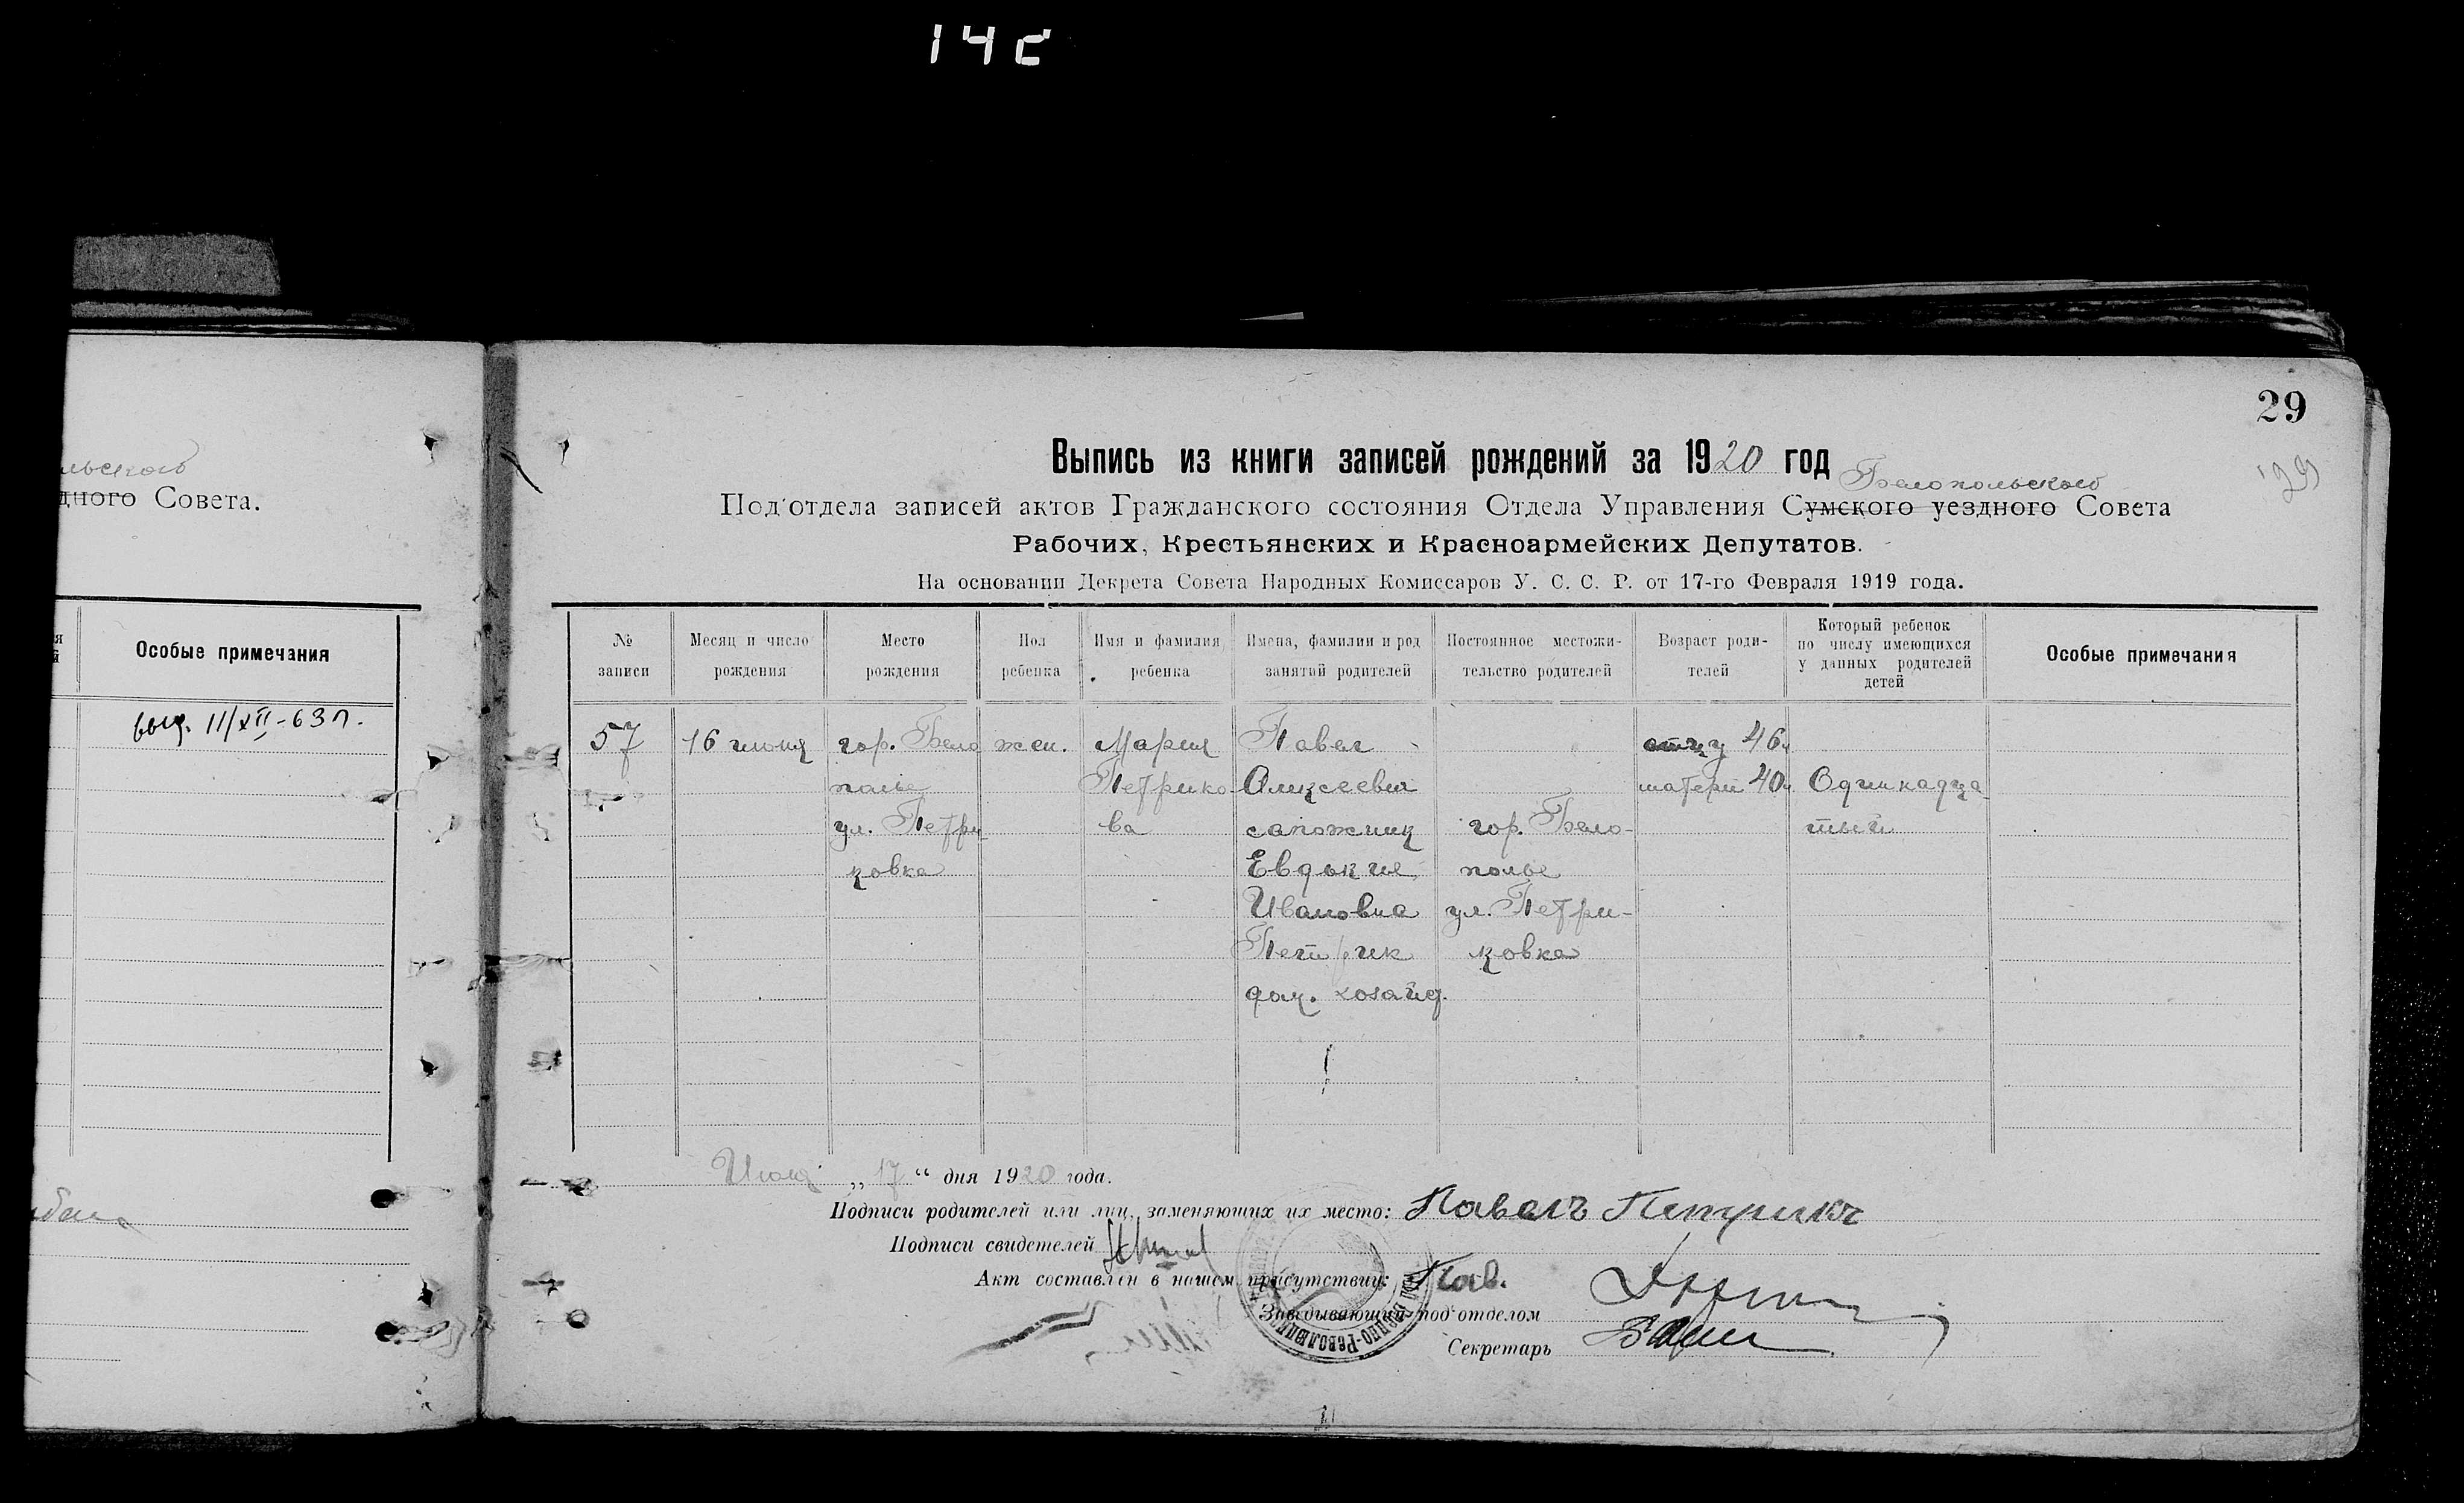 14c
льского
дного Совета.
Особые примечания
выд. 11/XII-63 г.
29
29
Выпись из книги записей рождений за 1920 год
Белопольского
Под'отдела записей актов Гражданского состояния Отдела Управления Сумского уездного Совета
Рабочих, Крестьянских и Красноармейских Депутатов.
На основании Декрета Совета Народных Комиссаров У. С. С. Р. от 17-го Февраля 1919 года.
№ записи
Месяц и число рождения
Место рождения
Пол ребенка
Имя и фамилия ребенка
Имена, фамилии и род занятий родителей
Постоянное местожительство родителей
Возраст родителей
Который ребенок по числу имеющихся у данных родителей детей
Особые примечания
57
16 июня
гор. Бело
полье
ул. Петри-
ковка
жен.
Мария
Петрико-
ва
Павел
Алексеевич
сапожник
Евдокия
Ивановна
Петрик
дом. хозяйд.
гор. Бело-
полье
ул. Петри-
ковка
отцу 46
матери 40
Одинадца-
тый
Июня „17“ дня 1920 года.
Подписи родителей или лиц, заменяющих их место: Павелъ Петрикъ
Подписи свидетелей
Акт составлен в нашем присутствии: Зав.
Заведывающий под'отделом
Секретарь